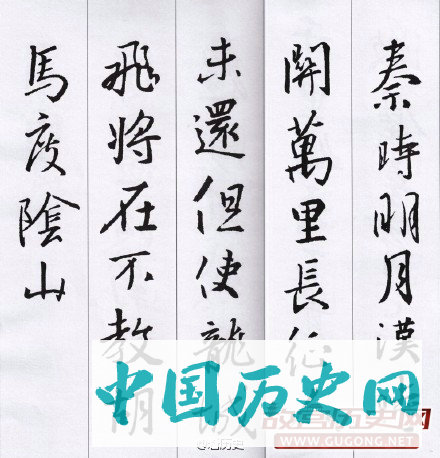 秦時明月漢
關萬里長征
未還但使龍城
飛將在不教胡
馬度陰山
中国历史网
故宫历史网
WWW.GUGONG.NET